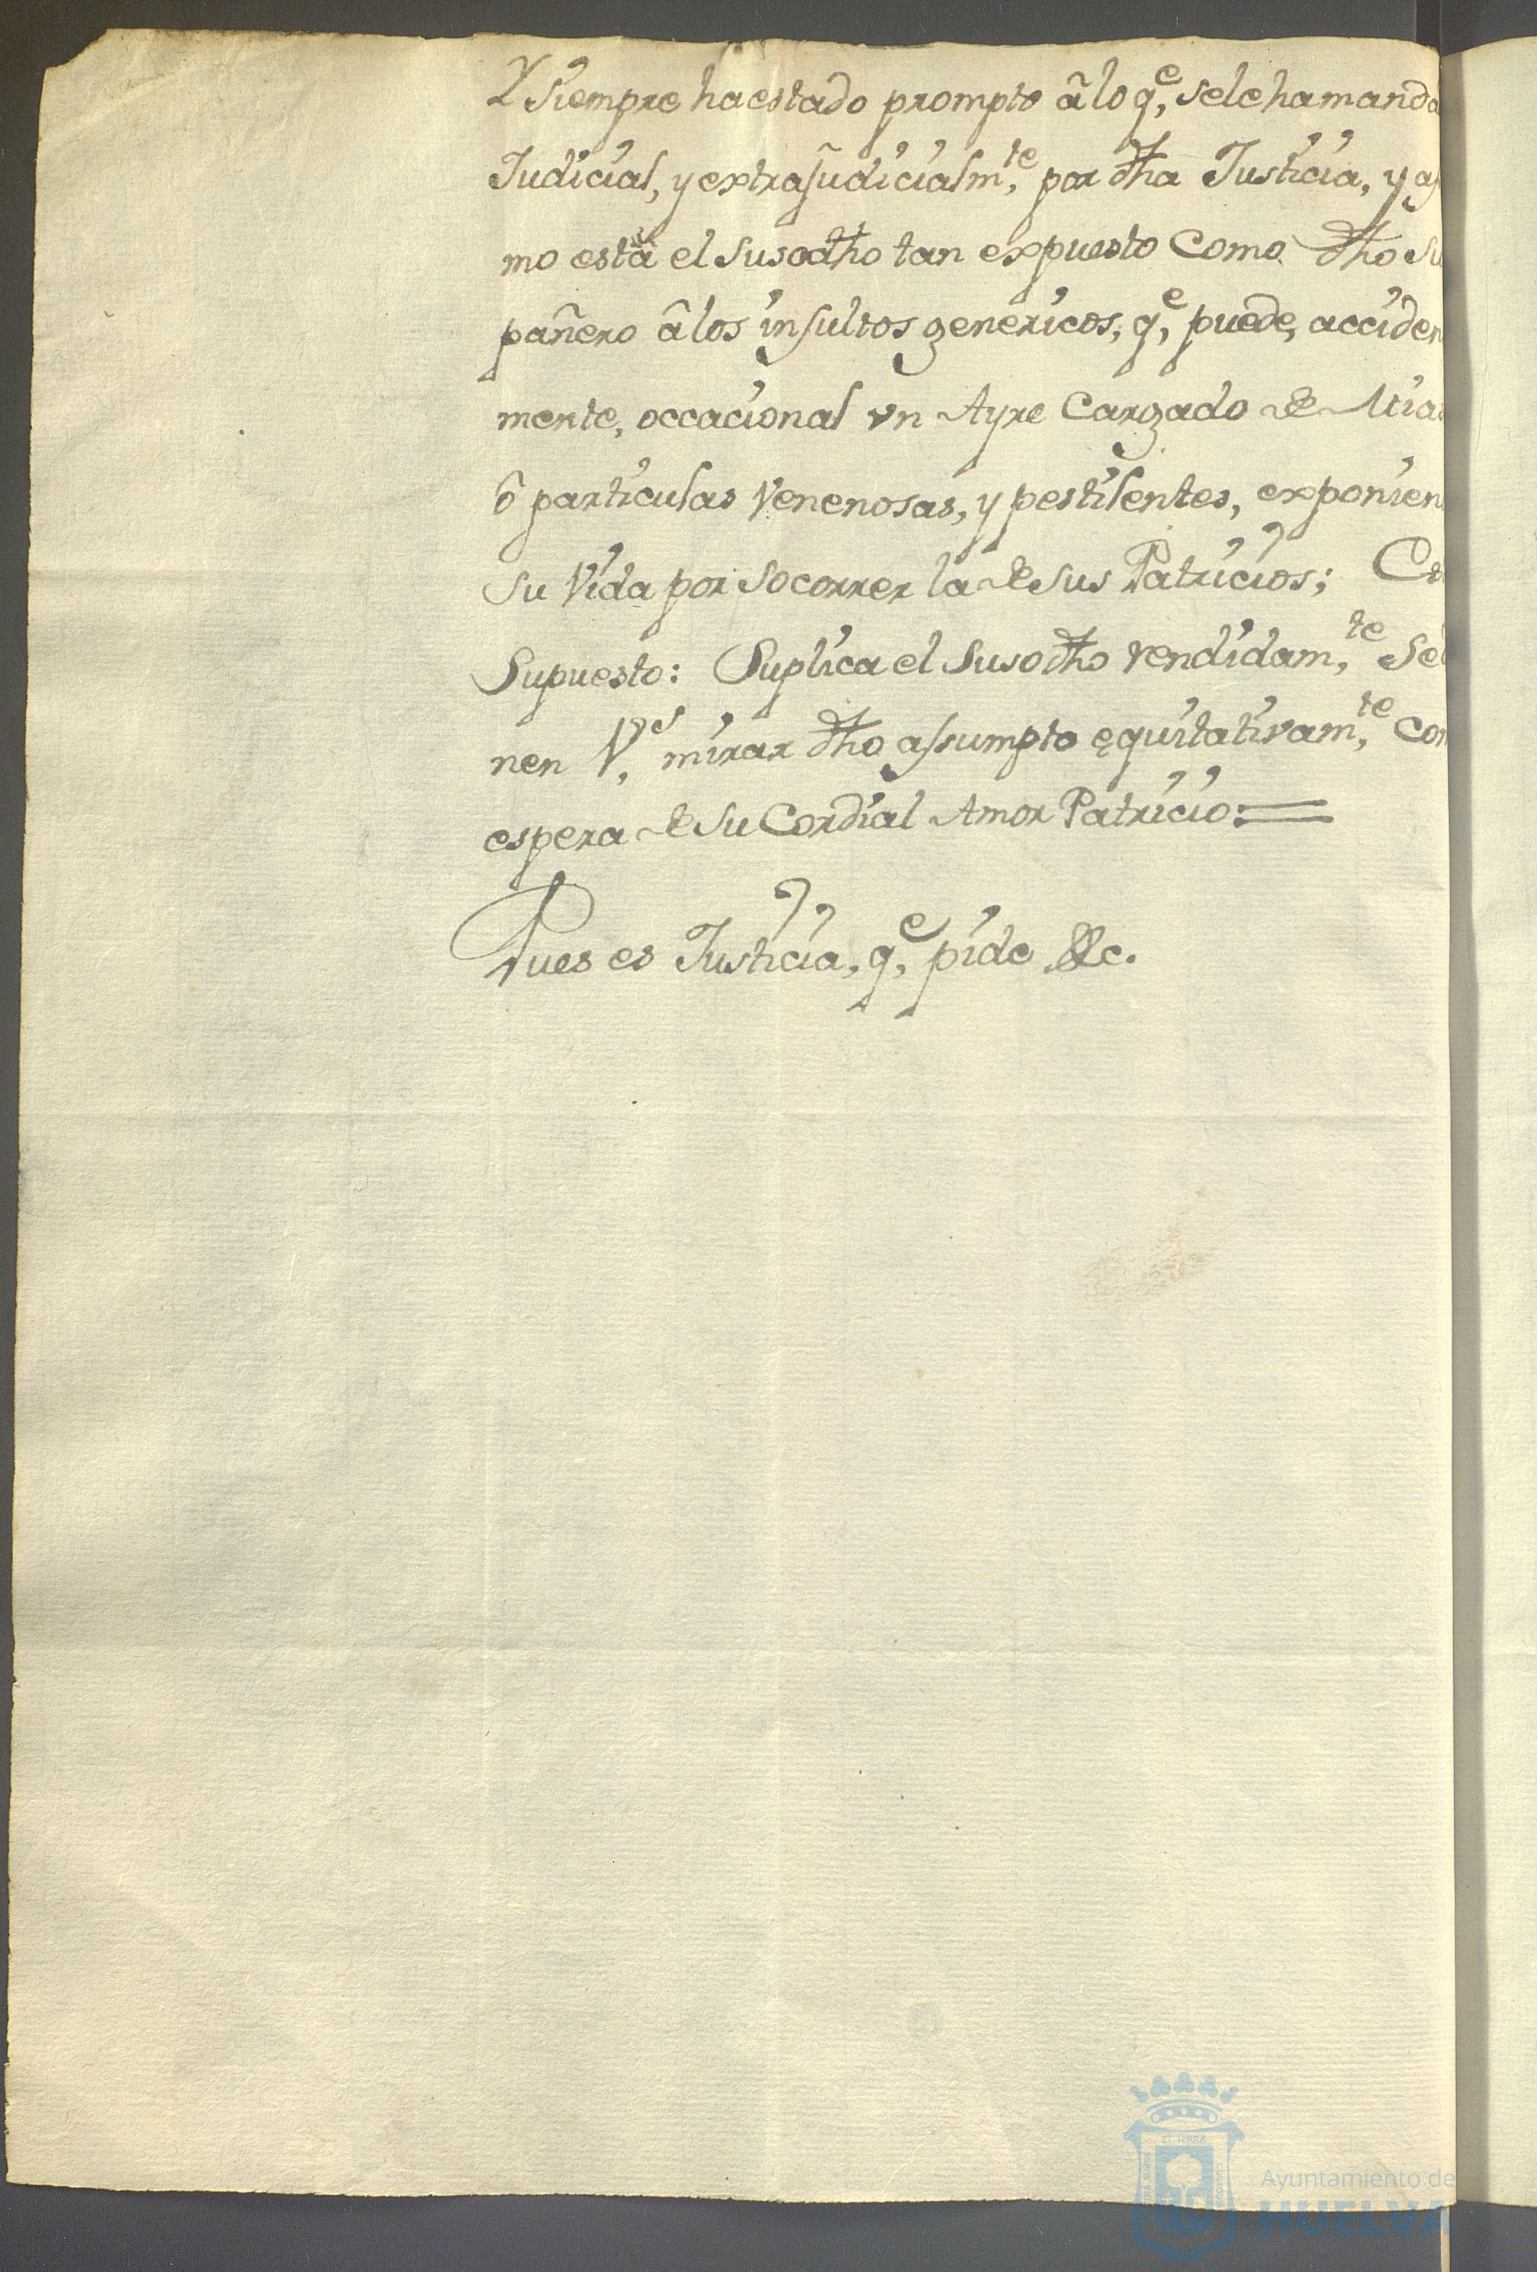 Y Siempre ha estado prompto â lo q.e se le ha manda
Judicial, y extrajudicialm.te por dha Justicia, y as
mo està el susodho tan expuesto como dho su
pañero â los insultos genericos, q.e puede, acciden
mente, occacional vn Ayre Cargado de Mia
ô particulas Venenosas, y pestilentes, exponien
su Vida por socorrer la de sus Patricios;
Supuesto: Suplica el susodho rendidam.te se
nen V.s mirar dho assumpto equitativam.te con
espera de su Cordial Amor Patricio:=
Pues es Justicia, q.e pide &c.
Ayuntamiento de
HUELVA